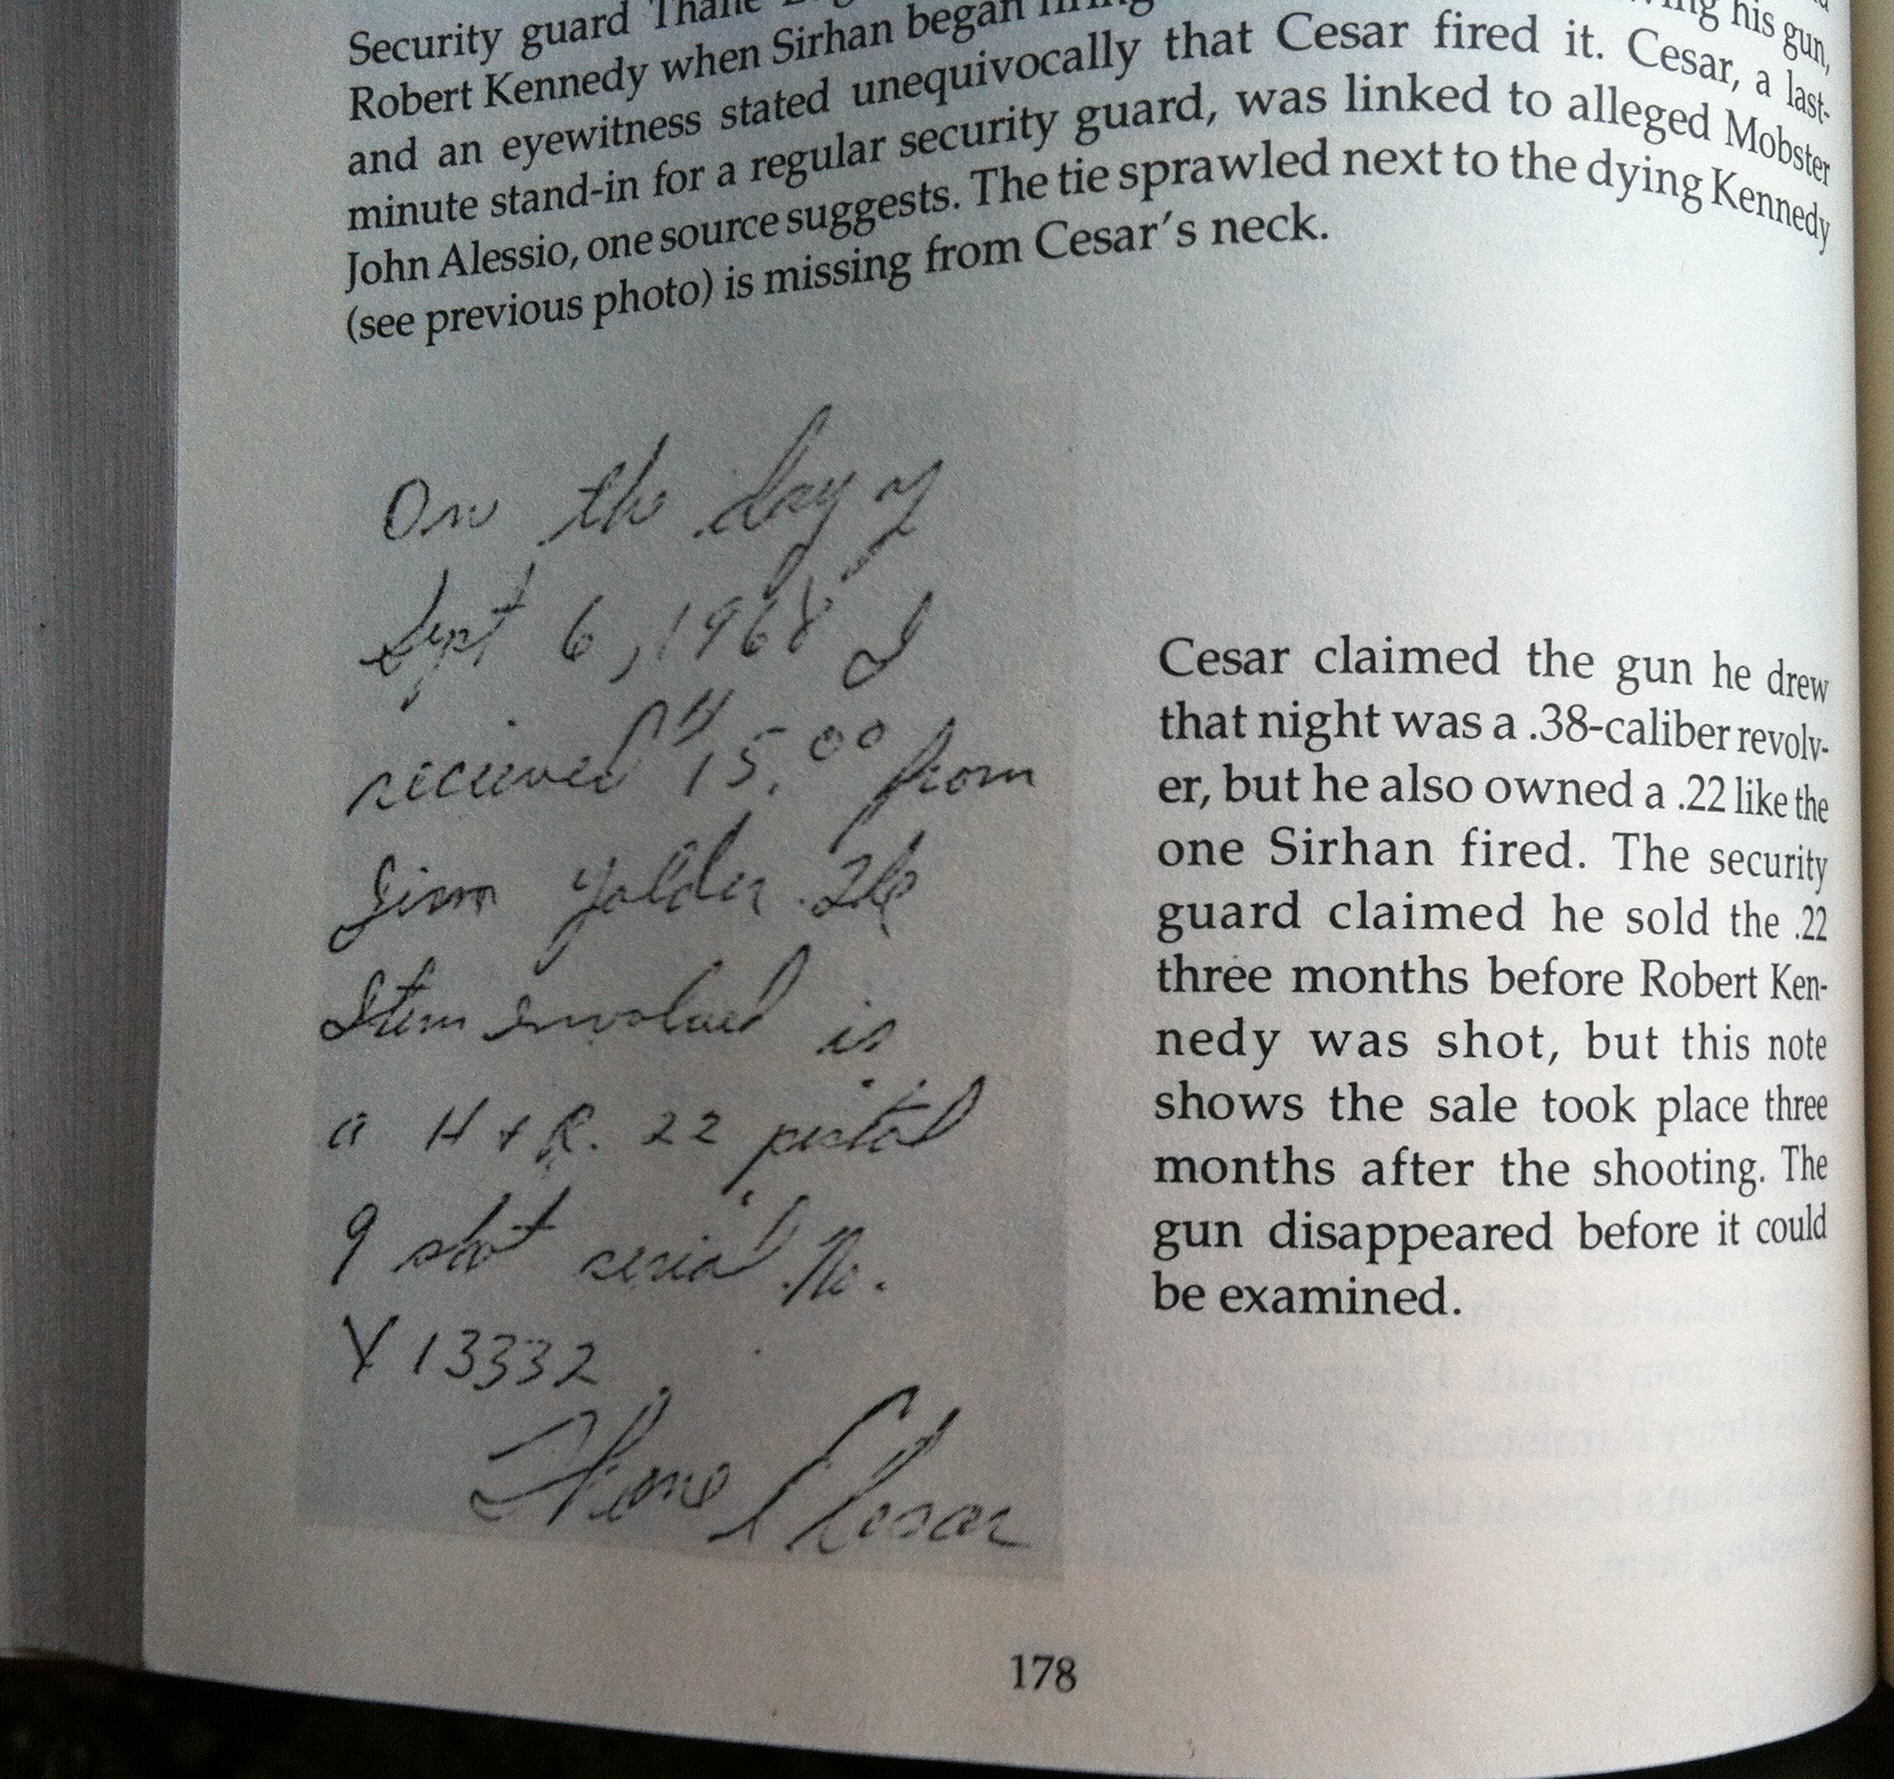 Security guard Thane
Robert Kennedy when Sirhan began his gun,
and an eyewitness stated unequivocally that Cesar fired it. Cesar, a last-
minute stand-in for a regular security guard, was linked to alleged Mobster
John Alessio, one source suggests. The tie sprawled next to the dying Kennedy
(see previous photo) is missing from Cesar's neck.
On the day of
Sept 6, 1968 I
recieved $15.00 from
Jim Yolder. The
Item Involved is
a H + R. 22 pistol
9 shot serial No.
Y 13332
Thane Cesar
Cesar claimed the gun he drew
that night was a .38-caliber revolv-
er, but he also owned a .22 like the
one Sirhan fired. The security
guard claimed he sold the .22
three months before Robert Ken-
nedy was shot, but this note
shows the sale took place three
months after the shooting. The
gun disappeared before it could
be examined.
178